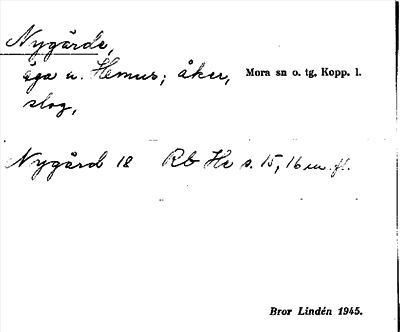 Nygårde,
äga u. Hemus; åker, Mora sn o. tg. Kopp. l.
slog,
Nygård 18 Rb He s. 15, 16 m. fl.
Bror Lindén 1945.